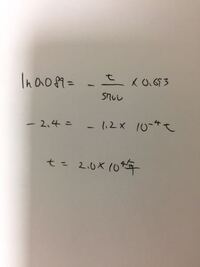 ln 0.089 = - t/5700 × 0.693
-2.4 = -1.2 × 10⁻⁴ t
t = 2.0 × 10⁴年